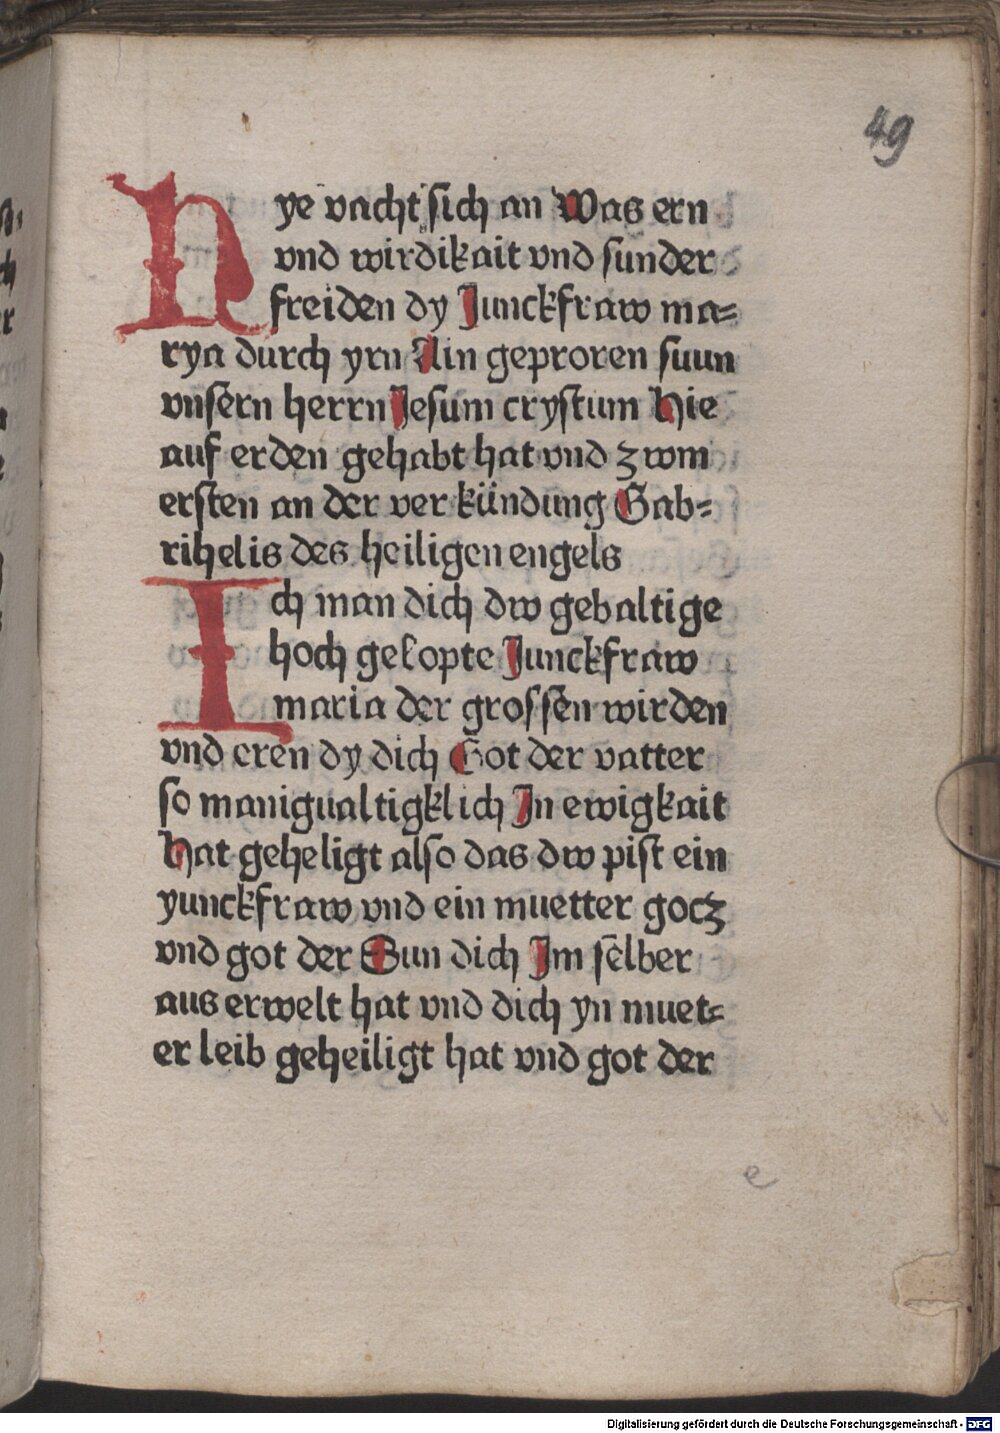 49
Hye vacht sich an Was ern
vnd wirdikait vnd sunder
freiden dy Junckfraw ma=
rya durch yrn Ain geproren suun
vnsern herrn Jesum crystum Hie
auf erden gehabt hat vnd zwm
ersten an der ver kündung Gab=
rihelis des heiligen engels
Ich man dich dw gebaltige
hoch gelopte Junckfraw
maria der grossen wirden
vnd eren dy dich Got der vatter
so manigualtigklich Jn ewigkait
Hat geheligt also das dw pist ein
yunckfraw vnd ein muetter gocz
vnd got der Sun dich Jm selber
aus erwelt hat vnd dich yn muet=
er leib geheiligt hat vnd got der
e
Digitalisierung gefördert durch die Deutsche Forschungsgemeinschaft - DFG